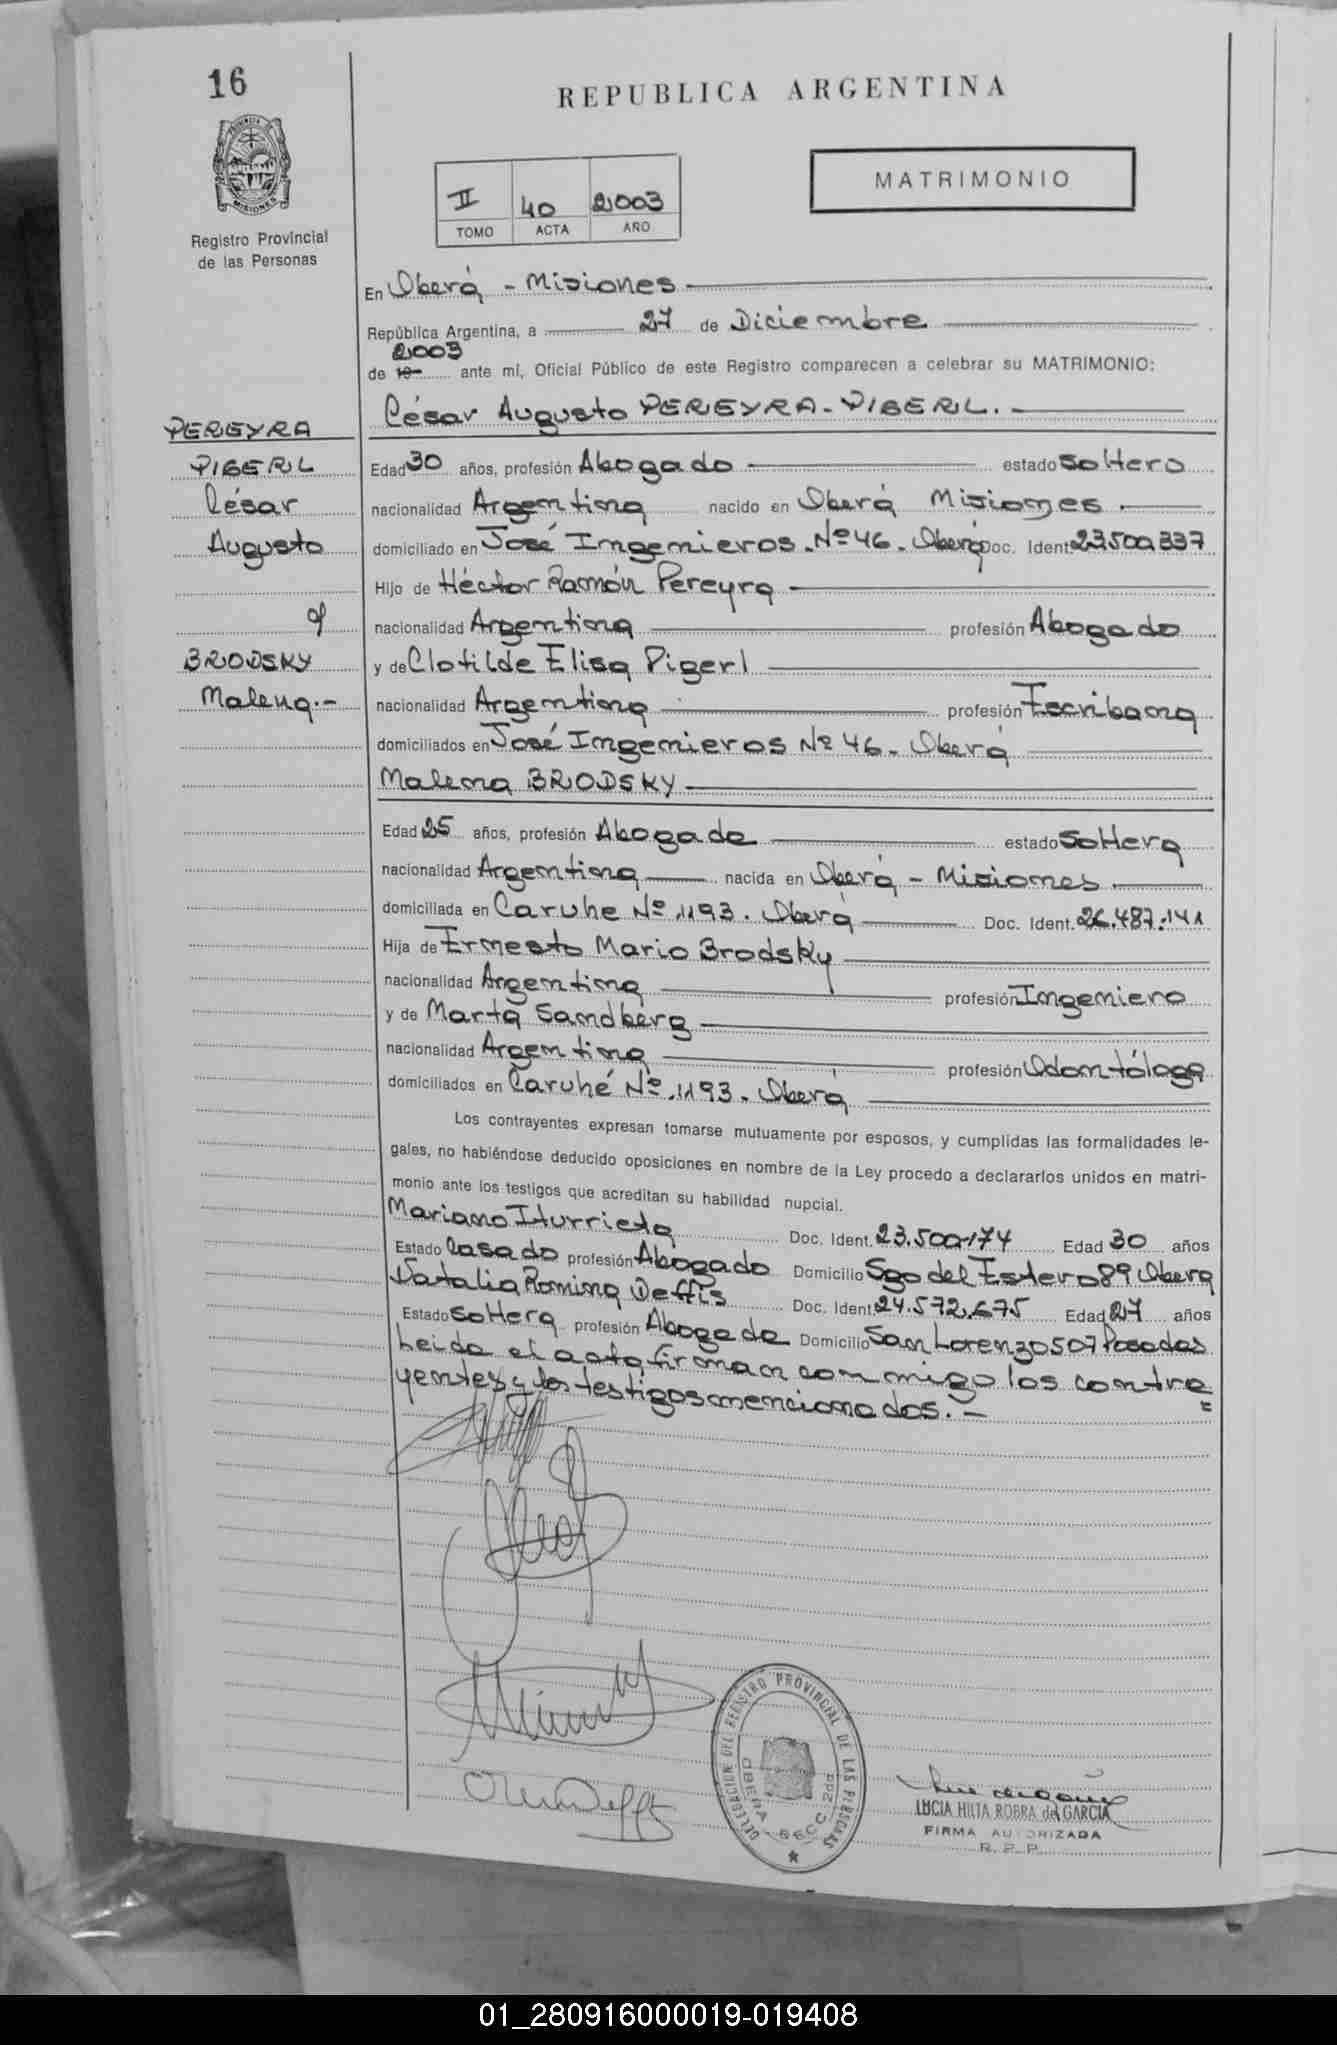 16
REPUBLICA ARGENTINA
PROVINCIA DE
MISIONES
Registro Provincial
de las Personas
II 40 2003
TOMO ACTA AÑO
MATRIMONIO
En Oberá - Misiones
República Argentina, a 27 de Diciembre
2003
de 19 ante mí, Oficial Público de este Registro comparecen a celebrar su MATRIMONIO:
César Augusto PEREYRA-PIGERL.-
PEREYRA
PIGERL
César
Augusto
y
BRODSKY
Malena.-
Edad 30 años, profesión Abogado estado soltero
nacionalidad Argentina nacido en Oberá Misiones
domiciliado en José Ingenieros.Nº 46. Oberá Doc. Ident. 23.500.337
Hijo de Héctor Ramón Pereyra
nacionalidad Argentina profesión Abogado
y de Clotilde Elisa Pigerl
nacionalidad Argentina profesión Escribana
domiciliados en José Ingenieros Nº 46. Oberá
Malena BRODSKY
Edad 25 años, profesión Abogada estado soltera
nacionalidad Argentina nacida en Oberá - Misiones
domiciliada en Caruhe Nº 1193. Oberá Doc. Ident. 26.487.141
Hija de Ernesto Mario Brodsky
nacionalidad Argentina profesión Ingeniero
y de Marta Sandberg
nacionalidad Argentina profesión Odontóloga
domiciliados en Caruhé Nº 1193. Oberá
Los contrayentes expresan tomarse mutuamente por esposos, y cumplidas las formalidades le-
gales, no habiéndose deducido oposiciones en nombre de la Ley procedo a declararlos unidos en matri-
monio ante los testigos que acreditan su habilidad nupcial.
Mariano Iturrieta Doc. Ident. 23.500.174 Edad 30 años
Estado Casado profesión Abogado Domicilio Sgo del Estero 89 Obera
Natalia Romina Deffis Doc. Ident. 24.572.675 Edad 27 años
Estado soltera profesión Abogada Domicilio San Lorenzo 507 Posadas
Leida el acta firman conmigo los contra
yentes y los testigos mencionados.-
DELEGACION DEL REGISTRO PROVINCIAL DE LAS PERSONAS
OBERA - SECC. 2da
LUCIA HILTA ROBRA de GARCIA
FIRMA AUTORIZADA
R. P. P.
01_280916000019-019408